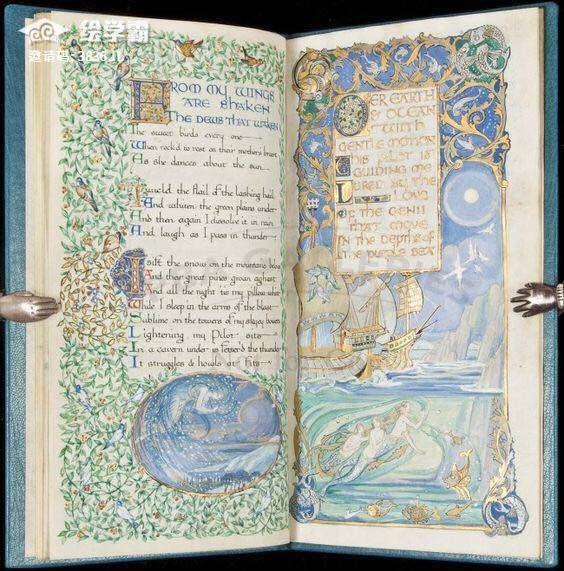 绘学霸
邀请码:
FROM MY WINGS
ARE SHAKEN
THE DEWS THAT WAKEN
The sweet birds every one
When rock'd to rest on their mother's breast
As she dances about the sun
I wield the flail of the lashing hail
And whiten the green plains under
And then again I dissolve it in rain
And laugh as I pass in thunder
I sift the snow on the mountains below
And their great pines groan aghast
And all the night tis my pillow white
While I sleep in the arms of the blast
Sublime on the towers of my skyey bowers
Lightening my Pilot sits
In a cavern under is fetter'd the thunder
It struggles & howls at fits
OVER EARTH
& OCEAN
WITH
GENTLE MOTION
THIS PILOT IS
GUIDING ME
LURED BY THE
LOVE
OF THE GENII
THAT MOVE
IN THE DEPTHS OF
THE PURPLE SEA